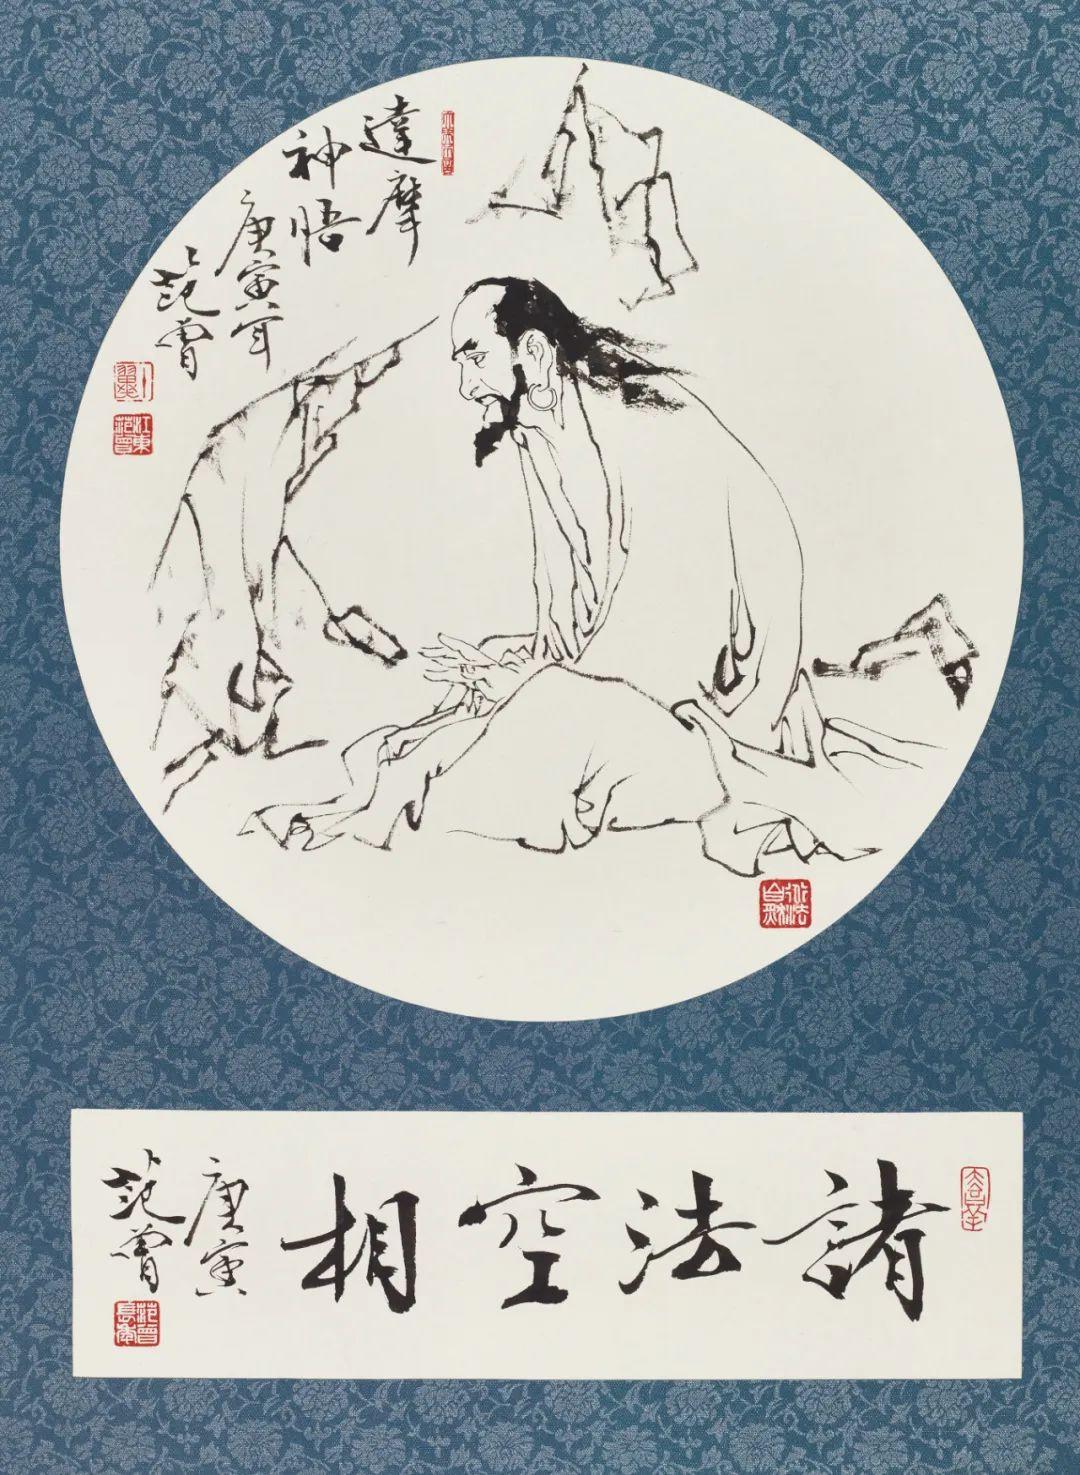 達摩
神悟
庚寅年
范曾
江東范曾
諸法空相
庚寅
范曾